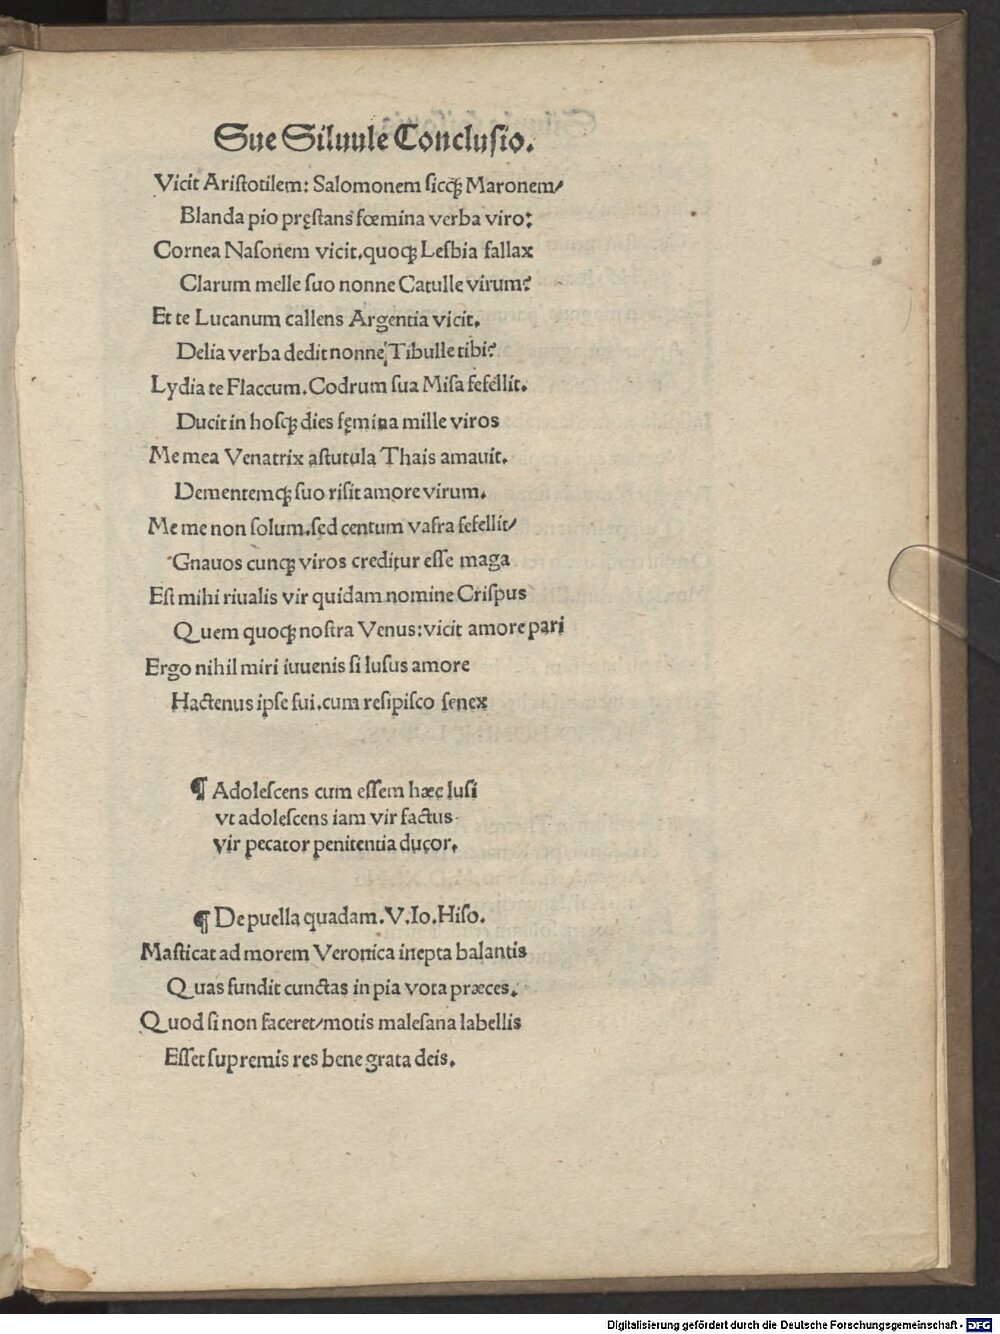 Sue Siluule Conclusio.
Vicit Aristotilem: Salomonem sicqꝫ Maronem/
Blanda pio pręstans fœmina verba viro:
Cornea Nasonem vicit.quoqꝫ Lesbia fallax
Clarum melle suo nonne Catulle virum?
Et te Lucanum callens Argentia vicit.
Delia verba dedit nonne Tibulle tibi?
Lydia te Flaccum. Codrum sua Misa fefellit.
Ducit in hosqꝫ dies fęmina mille viros
Me mea Venatrix astutula Thais amauit.
Dementemqꝫ suo risit amore virum.
Me me non solum.sed centum vafra fefellit/
Gnauos cunqꝫ viros creditur esse maga
Est mihi riualis vir quidam nomine Crispus
Quem quoqꝫ nostra Venus: vicit amore pari
Ergo nihil miri iuuenis si lusus amore
Hactenus ipse fui.cum resipisco senex
¶ Adolescens cum essem hæc lusi
vt adolescens iam vir factus
vir pecator penitentia ducor.
¶ De puella quadam. V. Io. Hiso.
Masticat ad morem Veronica inepta balantis
Quas fundit cunctas in pia vota præces.
Quod si non faceret/motis malesana labellis
Esset supremis res bene grata deis.
Digitalisierung gefördert durch die Deutsche Forschungsgemeinschaft - DFG